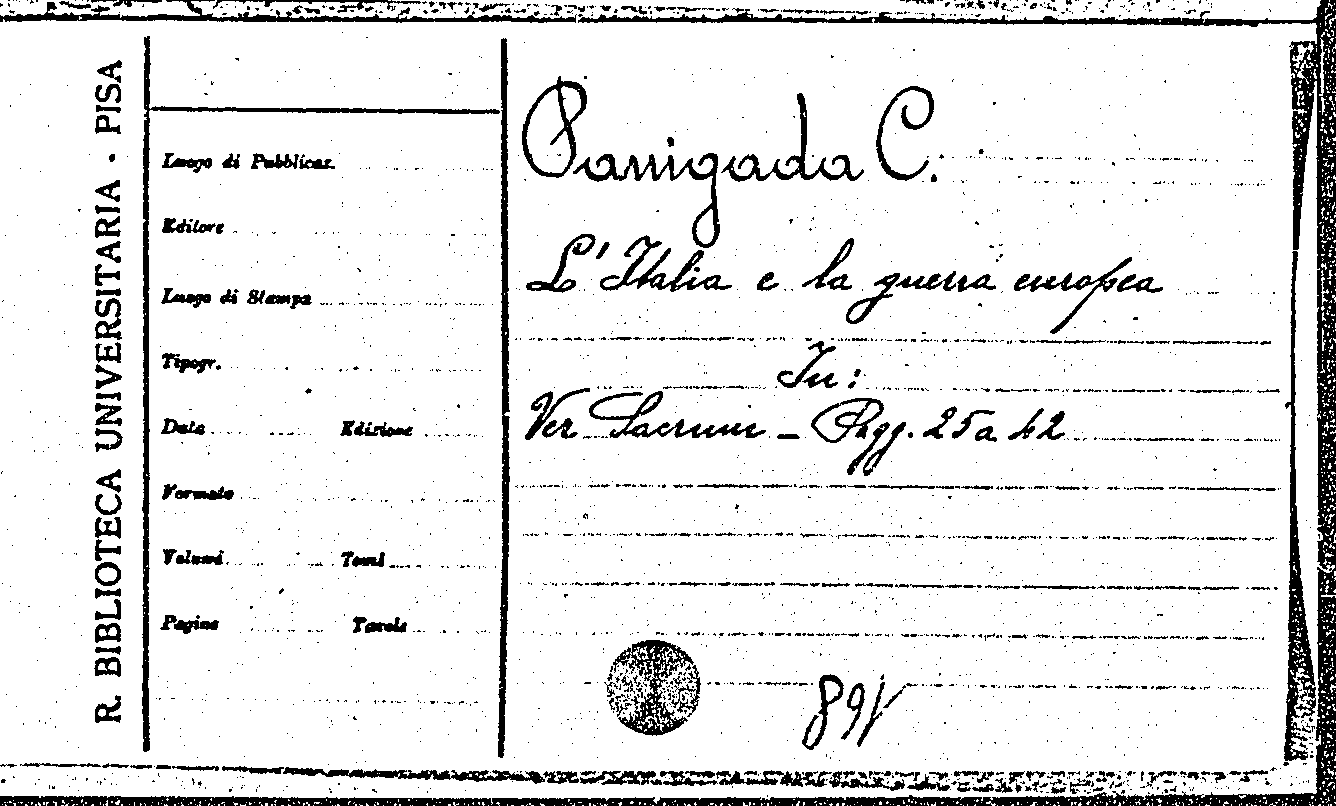 R. BIBLIOTECA UNIVERSITARIA - PISA
Luogo di Pubblicaz.
Editore
Luogo di Stampa
Tipogr.
Data Edizione
Formato
Volumi Tomi
Pagine Tavole
Panigada C.
L'Italia e la guerra europea
In:
Ver Sacrum - Pagg. 25 a 42